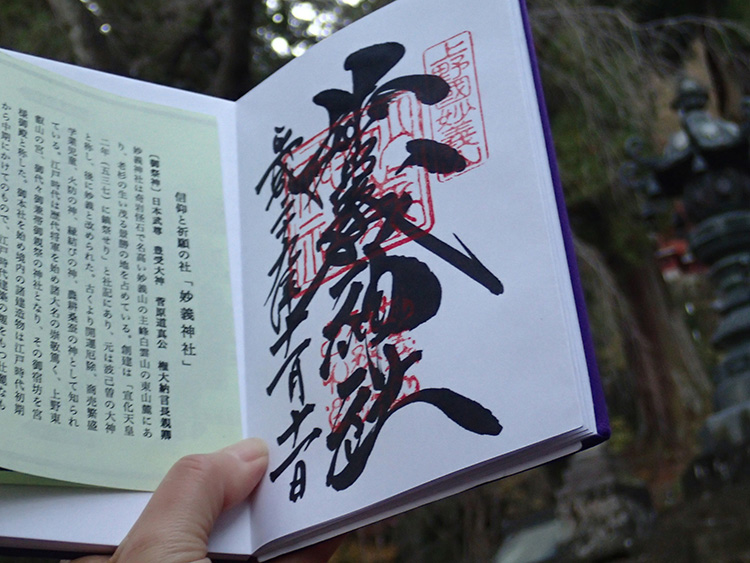 上野國妙義
妙義神社
信仰と祈願の社「妙義神社」
(御祭神) 日本武尊 豊受大神 菅原道真公 権大納言長親卿
妙義神社は奇岩怪石で名高い妙義山の主峰白雲山の東山麓にあ
り、老杉の生い茂る景勝の地を占めている。創建は「宣化天皇
二年(五三七)に鎮祭せり」と社記にあり、元は波己曽の大神
と称し、後に妙義と改められた。古くより開運厄除、商売繁盛
学業児童、火防の神、縁結びの神、農耕桑蚕の神として知られ
ている。江戸時代は歴代将軍を始め諸大名の崇敬篤く、上野東
叡山の宮、御代々御兼帯御親祭の神社となり、その御宿坊を宮
様御殿と称した。御本社を始め境内の諸建造物は江戸時代初期
から中期にかけてのもので、江戸時代建築の粋をもつ壮麗なも